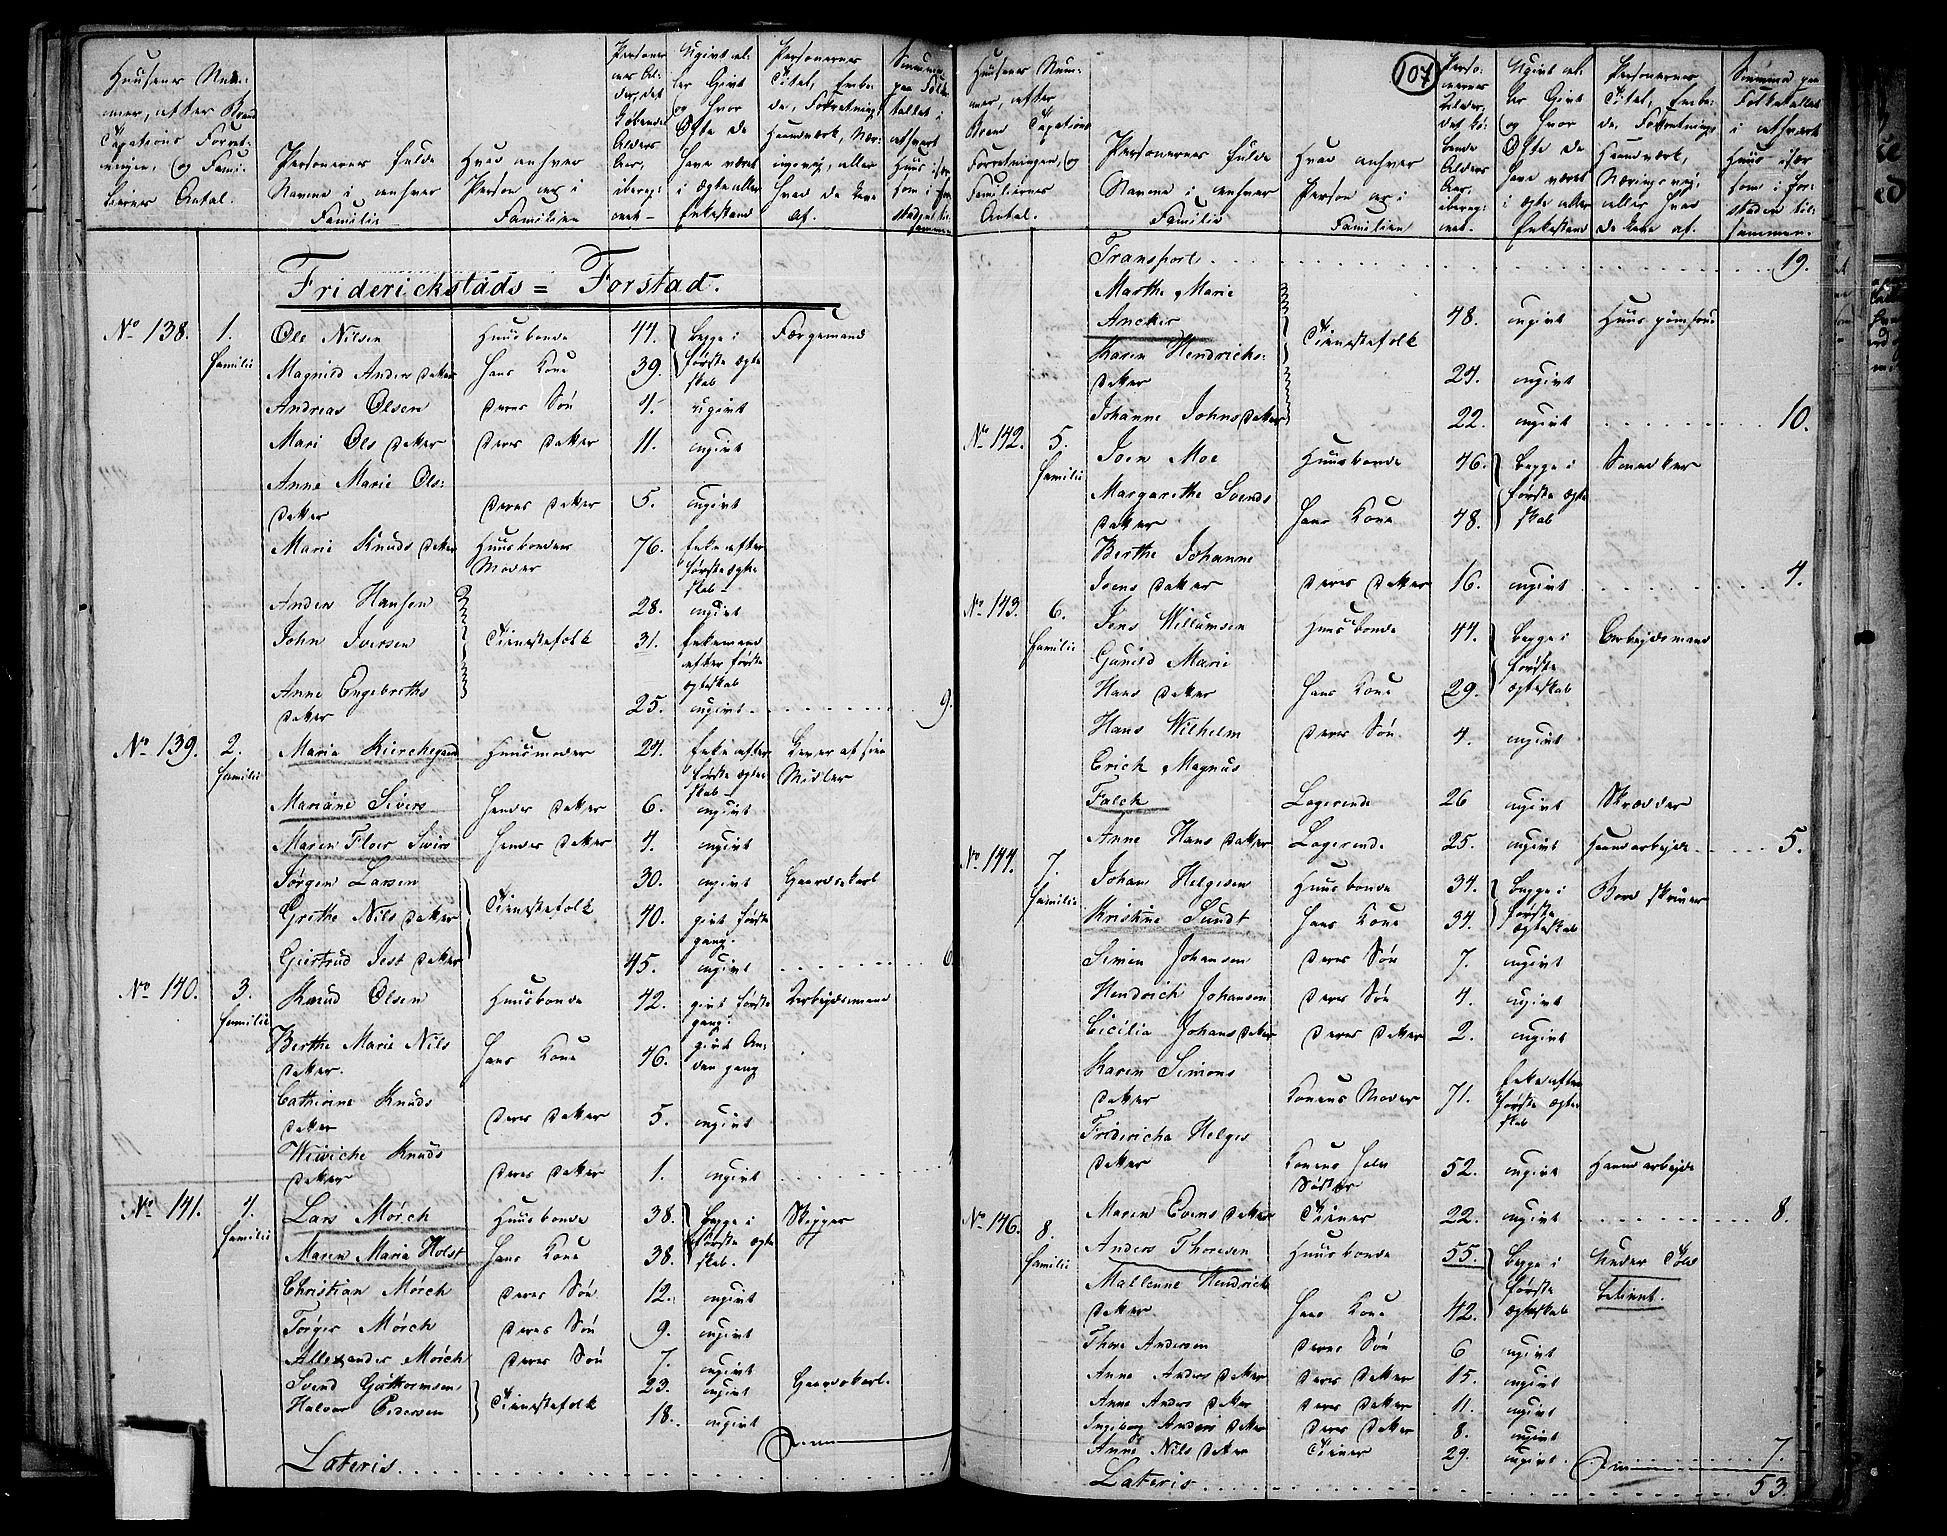 Huusenes Num-
mer, efter Brand
Taxations Forret-
ningen, og Fami-
liernes Antal.
Personernes fulde
Navne i enhver
Familie
Hvad enhver
Person er i
Familien
Ugivt el-
ler Givt
og hvor
Ofte de
have været
i Ægte eller
Enkestand
Personernes
Titel, Embe-
de, Forretning,
Haandværk, Nær-
ingsvej, eller
hvad de leve
af.
Friderickstads = Forstad.
No 138. 1. Familie Ole Nilsen Huusbonde 44. begge i første Ægteskab Færgemand
Magnild Anders Datter Hans Kone 39.
Andreas Olsen Deres Søn 4. ugivt
Mari Ols Datter Deres Datter 11. ugivt
Anne Marie Ols:
Datter Deres Datter 5. ugivt
Marie Knuds Datter Huusbondens Moder 76. Enke efter første Ægteskab
Anders Hansen 28. ugivt
John Iversen Tienestefolk 31. Enkemand efter første Ægteskab
Anne Engebreths
Datter 25. ugivt 9.
No 139. 2. Familie Maria Kirchegaard Huusmoder 24. Enke efter første Ægteskab Lever af sine Midler
Mariane Sivers Hendes Datter 6. ugivt
Maren Floer Sivers Hendes Datter 4. ugivt
Jørgen Larsen 30. ugivt Gaardskarl
Grethe Nils Datter Tienestefolk 40. givt første gang.
Giertrud Jest Datter 45. ugivt 6
No 140. 3. Familie Knud Olsen Huusbonde 42. givt første gang. Arbejdsmand
Berthe Marie Nils
Datter. Hans Kone 46. givt Anden gang
Cathrine Knuds
Datter Deres Datter 5. ugivt
Wiviche Knuds
Datter Deres Datter 1. ugivt
No 141. 4. Familie Lars Mørch Huusbonde 38. begge i første Ægteskab. Skipper
Maren Maria Holst Hans Kone 38.
Christian Mørch Deres Søn 12. ugivt
Torger Mørch Deres Søn 9. ugivt
Allexander Mørch Deres Søn 7. ugivt
Svend Guthormsen 23. ugivt Gaardskarl.
Halvor Pedersen Tienestefolk 18. ugivt
Lateris
107
Huusenes Num-
mer, efter
Brand Taxations
Forretningen, og
Familiernes
Antal.
Personernes fulde
Navne i enhver
Familie
Hvad enhver
Person er i
Familien
Perso-
nernes
Alder,
det lø-
bende
Alders
Aar,
ibereg-
net.
Ugivt el-
ler Givt
og hvor
Ofte de
have været
i Ægte eller
Enkestand
Personernes
Titel, Embe-
de, Forretning
Haandværk,
Næringsvej,
eller hvad
de leve af.
Summa paa
Folketallet
i ethvert
Huus især
som i For-
staden til-
sammen.
Transport 19.
Marthe Marie
Ancker 48. ugivt Huusjomfrue
Karen Hendrichs:
Datter Tienestefolk 24. ugivt
Johanne Johns Datter 22. ugivt 10.
No 142. 5. Familie Joen Moe Huusbonde 46. begge i første Ægteskab Snedker
Margarethe Svends
Datter Hans Kone 48.
Berthe Johanne
Joens Datter Deres Datter 16. ugivt 4.
No 143. 6. Familie Jens Willumsen Huusbonde 44. begge i første Ægteskab Arbejdsmand
Gunild Marie
Hans Datter Hans Kone 29.
Hans Wilhelm Deres Søn 4. ugivt
Erich Magnus
Falch Logerende 26 ugivt Skrædder
Anne Hans Datter Logerende 25. ugivt Haandarbejde 5.
No 144. 7. Familie Johan Helgesen Huusbonde 34. begge i første Ægteskab Bord skriver
Kristine Sundt Hans Kone 34.
Simen Johansen Deres Søn 7. ugivt
Hendrich Johansen Deres Søn 4. ugivt
Cicilia Johans Datter Deres Datter 2. ugivt
Karen Simons
Datter Konens Moder 71. Enke efter første Ægteskab
Fridericha Helges
Datter Konens halv Søster 52. ugivt Haandarbejde
Maren Evens Datter Tiener 22. ugivt 8.
No 146. 8. Familie Anders Thoresen Huusbonde 55. begge i første Ægteskab Under Told betient.
Mallenne Hendrichs
Datter Hans Kone 42.
Thore Andersen Deres Søn 6 ugivt
Anne Anders Datter Deres Datter 15. ugivt
Anne Anders Datter Deres Datter 11. ugivt
Ingeborg Anders Datter Deres Datter 8. ugivt
Anne Nils Datter Tiener 29. ugivt 7.
Lateris 53.